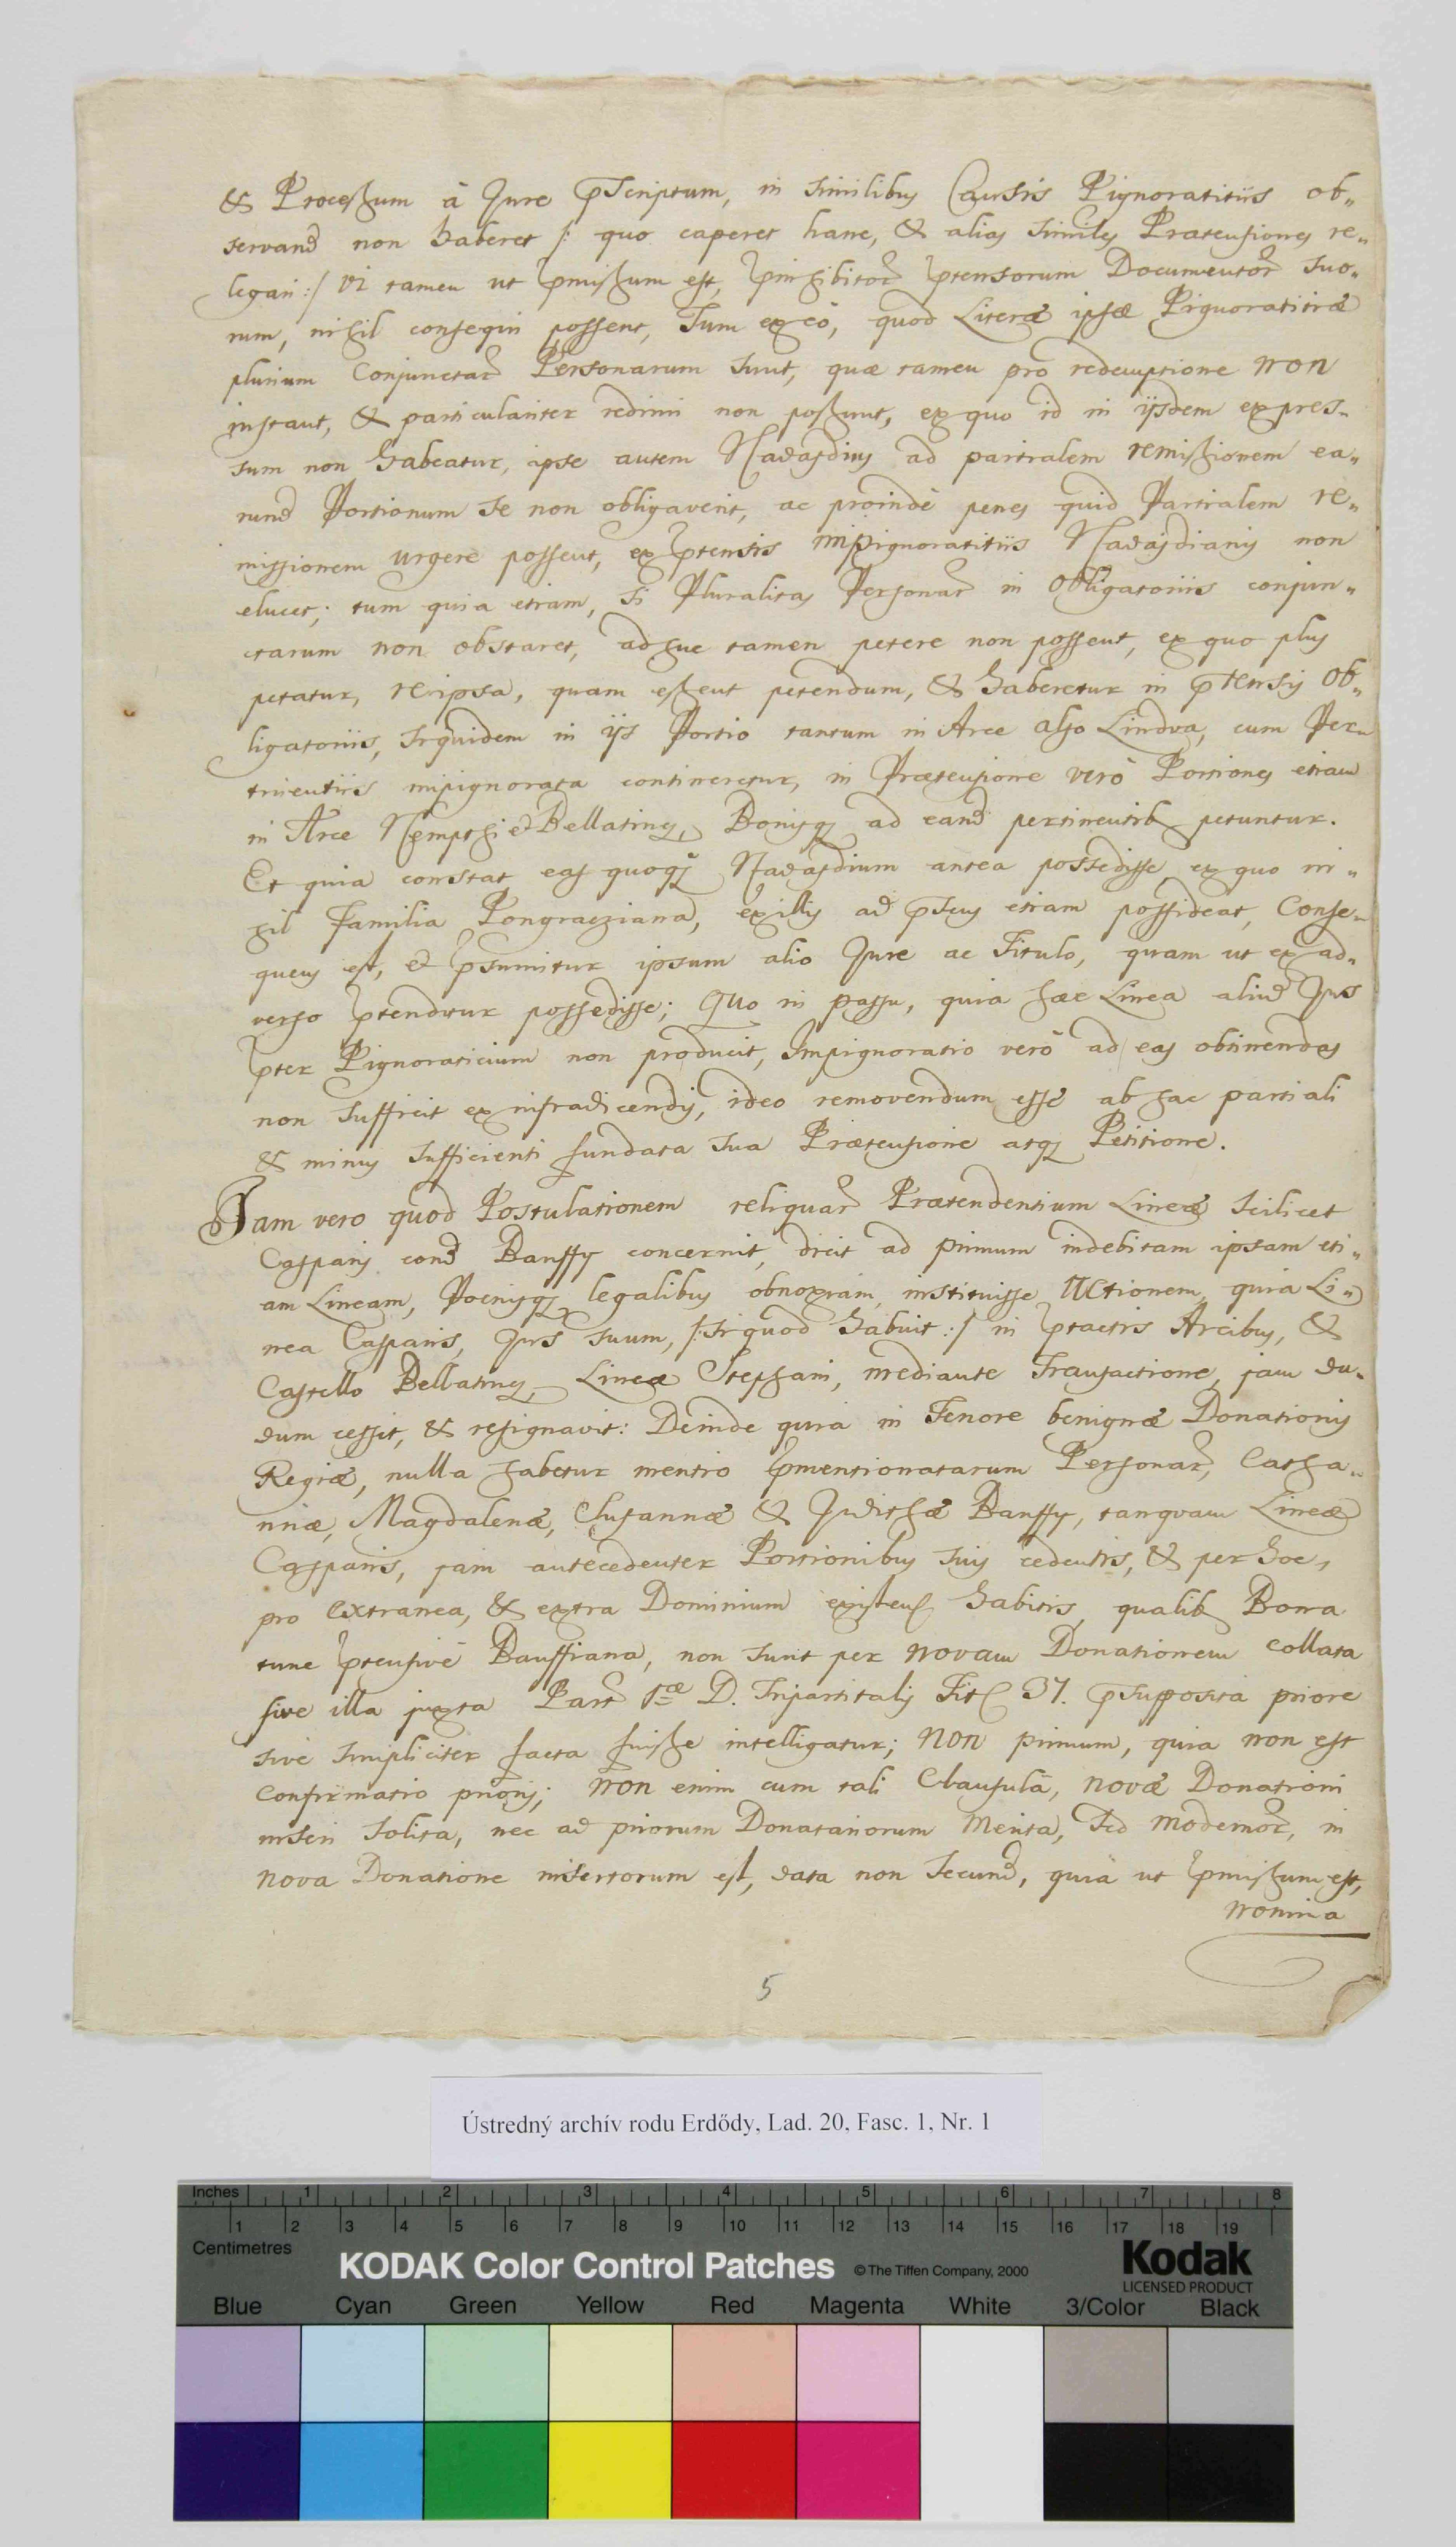 & Processum à Jure pscriptum, in similibus Causis Pignoratitiis ob„
servand non haberet /: quo caperet hanc, & alias similes Prætensiones re„
legari :/ vi tamen ut pmissum est, pinhibitor ptensorum Documentor suo„
rum, nihil consequi possent, Tum ex eò, quod Literæ ipsæ Pignoratitiæ
plurium Conjunctar Personarum sunt, quæ tamen pro redemptione non
instant, & particulariter redimi non possunt, ex quo id in ijsdem expres„
sum non habeatur, ipse autem Nadasdius ad partialem remissionem ea„
rund Portionum se non obligaverit, ac proindè penes quid Partialem re„
missionem urgere possent, ex ptensis impignoratitiis Nadasdianis non
elucet; tum quia etiam, si Pluralitas Personar in Obligatoriis conjun„
ctarum non obstaret, adhuc tamen petere non possent, ex quo plus
petatur, reipsa, quam esset petendum, & haberetur in ptensis Ob„
ligatoriis, siquidem in ijs Portio tantum in Arce Also Lindva, cum Per„
tinentiis impignorata contineretur, in Prætensione verò Portiones etiam
in Arce Nempthi et Bellatincz, Bonisq ad eand pertinentib petuntur.
Et quia constat eas quoq Nadasdium antea possedisse, ex quo ni„
hil Familia Pongracziana, ex illis ad psens etiam possideat, Conse„
quens est, et psumitur ipsum alio Jure ac Titulo, quam ut ex ad„
verso ptenditur possedisse; Quo in passu, quia hæc Linea aliud Jus
pter Pignoraticium non producit, Impignoratio verò ad eas obtinendas
non sufficit ex infradicendis, ideo removendum esse ab hac partiali
& minus sufficienti fundata sua Prætensione atq Petitione.
Jam vero quod Postulationem reliquar Prætendentium Lineæ scilicet
Casparis cond Banffy concernit, dicit ad primum indebitam ipsam eti„
am Lineam, Poenisq legalibus obnoxiam, instituisse Actionem, quia Li„
nea Casparis, Jus suum, /: si quod habuit :/ in ptactis Arcibus, &
Castello Bellatincz, Lineæ Stephani, mediante Transactione, jam du„
dum cessit, & resignavit: Deinde quia in Tenore benignæ Donationis
Regiæ, nulla habetur mentio pmentionatarum Personar, Catha„
rinæ, Magdalenæ, Susannæ & Judithæ Banffy, tanquam Lineæ
Casparis, jam antecedenter Portionibus suis cedentis, & per hoc,
pro extranea, & extra Dominium existen habitis, qualib Bona
tunc ptensivè Banffiana, non sunt per novam Donationem collata
sive illa juxta Part 1æ D. Tripartitalis Tit 37. psupposita priore
sive simpliciter facta fuisse intelligatur; Non primum, quia non est
Confirmatio prioris; non enim cum tali Clausulâ, novæ Donationi
inseri solita, nec ad priorum Donatariorum Merita, Sed modernor, in
nova Donatione insertorum est, data non secund, quia ut pmissum est,
nomina
5
Ústredný archív rodu Erdődy, Lad. 20, Fasc. 1, Nr. 1
Inches 1 2 3 4 5 6 7 8
1 2 3 4 5 6 7 8 9 10 11 12 13 14 15 16 17 18 19
Centimetres
KODAK Color Control Patches © The Tiffen Company, 2000 Kodak
LICENSED PRODUCT
Blue Cyan Green Yellow Red Magenta White 3/Color Black